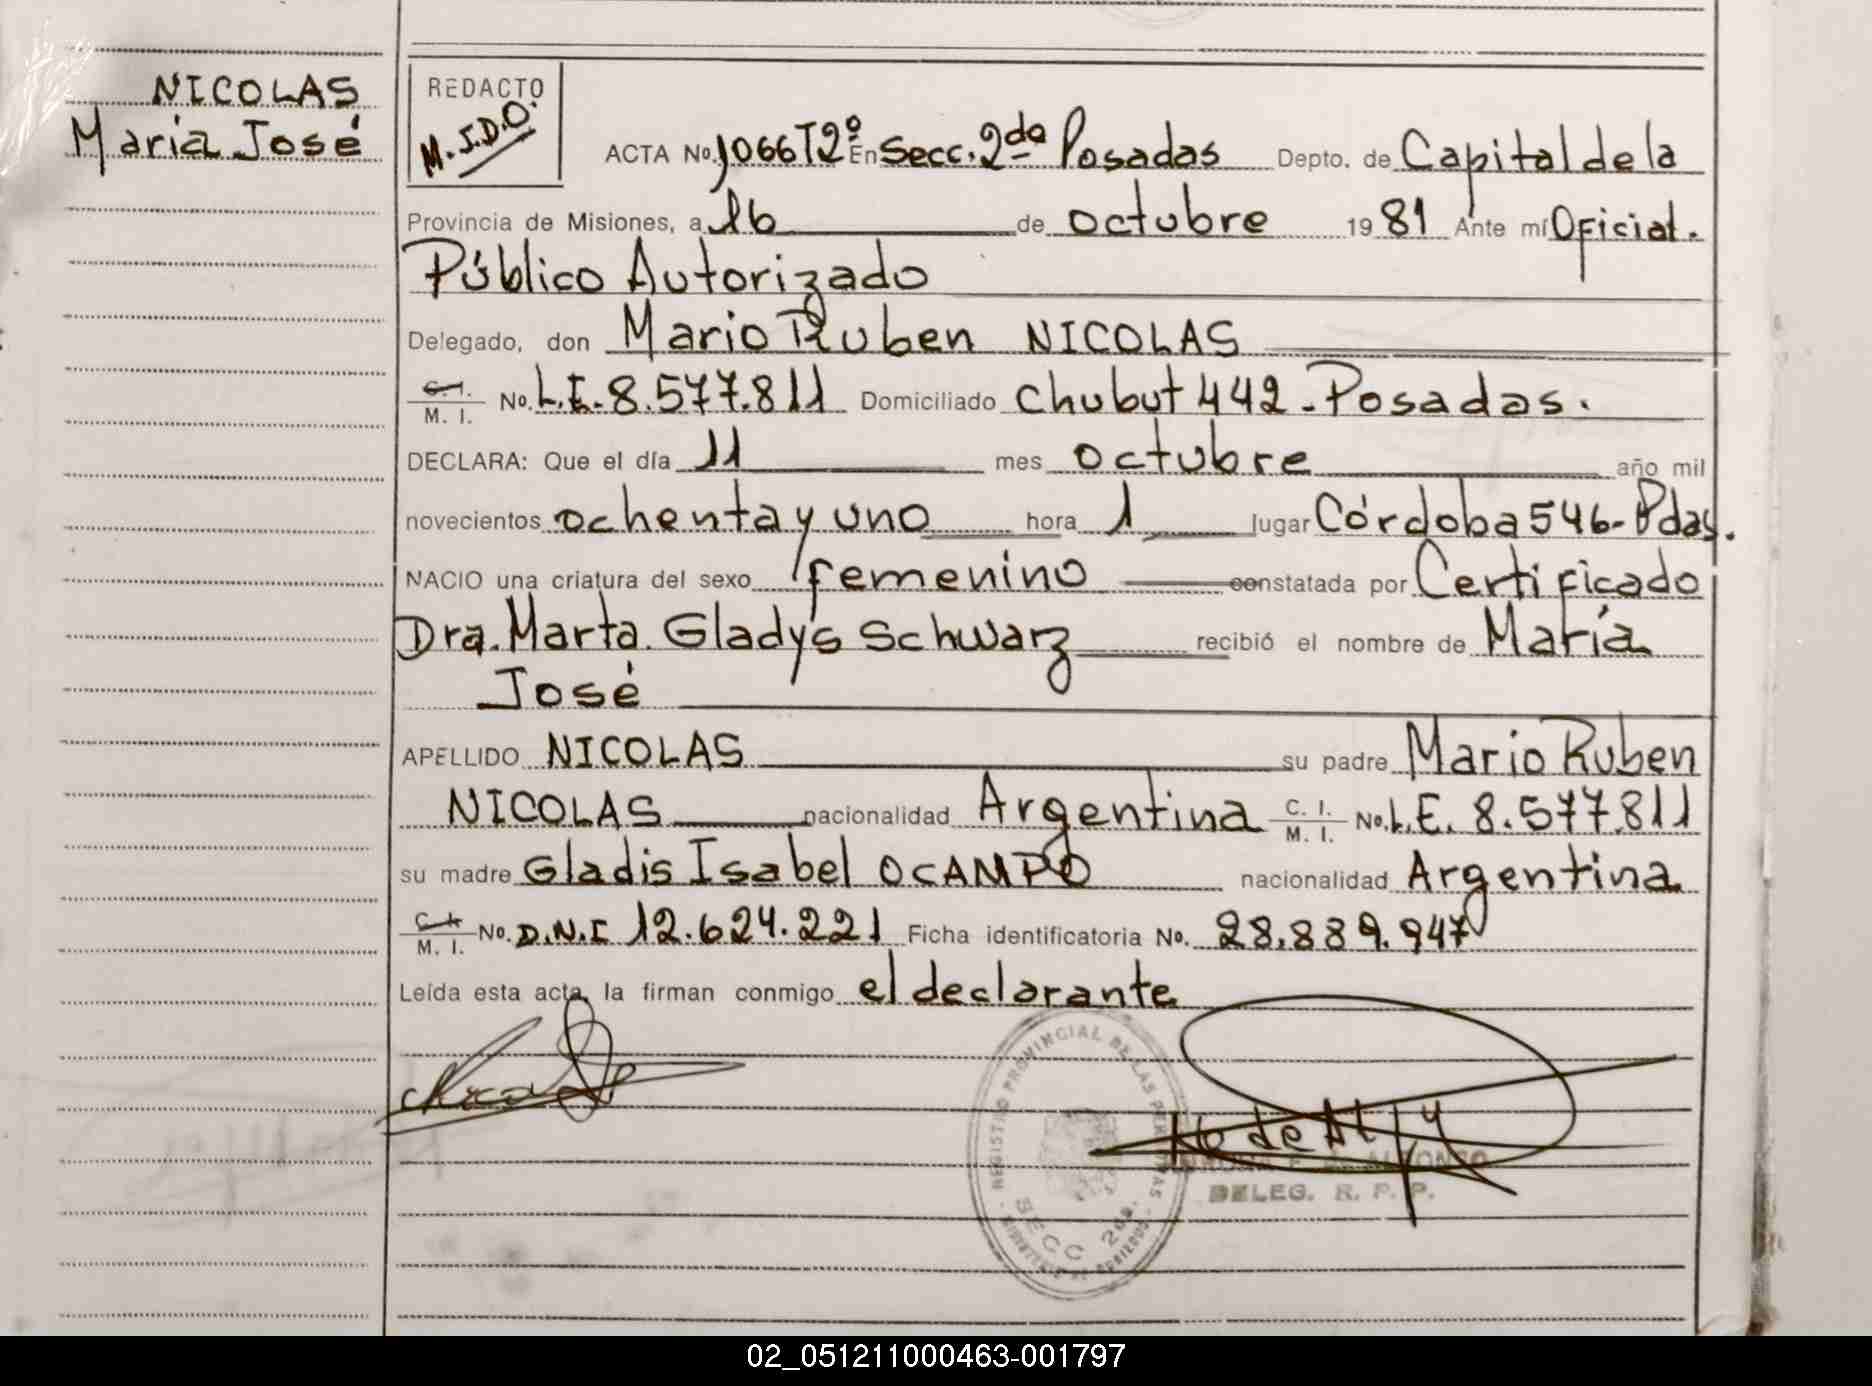 NICOLAS
María José
REDACTO
M.J.D.O.
ACTA No. 1066 T2º En Secc. 2da Posadas Depto. de Capital de la
Provincia de Misiones, a 16 de octubre 1981 Ante mí Oficial.
Público Autorizado
Delegado, don Mario Ruben NICOLAS
C. I.
M. I. No. L.E. 8.577.811 Domiciliado Chubut 442 - Posadas.
DECLARA: Que el día 11 mes octubre año mil
novecientos ochenta y uno hora 1 lugar Córdoba 546 - Pdas.
NACIO una criatura del sexo femenino constatada por Certificado
Dra. Marta Gladys Schwarz recibió el nombre de María
José
APELLIDO NICOLAS su padre Mario Ruben
NICOLAS nacionalidad Argentina C. I. M. I. No. L.E. 8.577.811
su madre Gladis Isabel OCAMPO nacionalidad Argentina
C. I. M. I. No. D.N.I 12.624.221 Ficha identificatoria No. 28.889.947
Leída esta acta, la firman conmigo el declarante
REGISTRO PROVINCIAL DE LAS PERSONAS
SECC 2da.
DELEG. R. P. P.
02_051211000463-001797